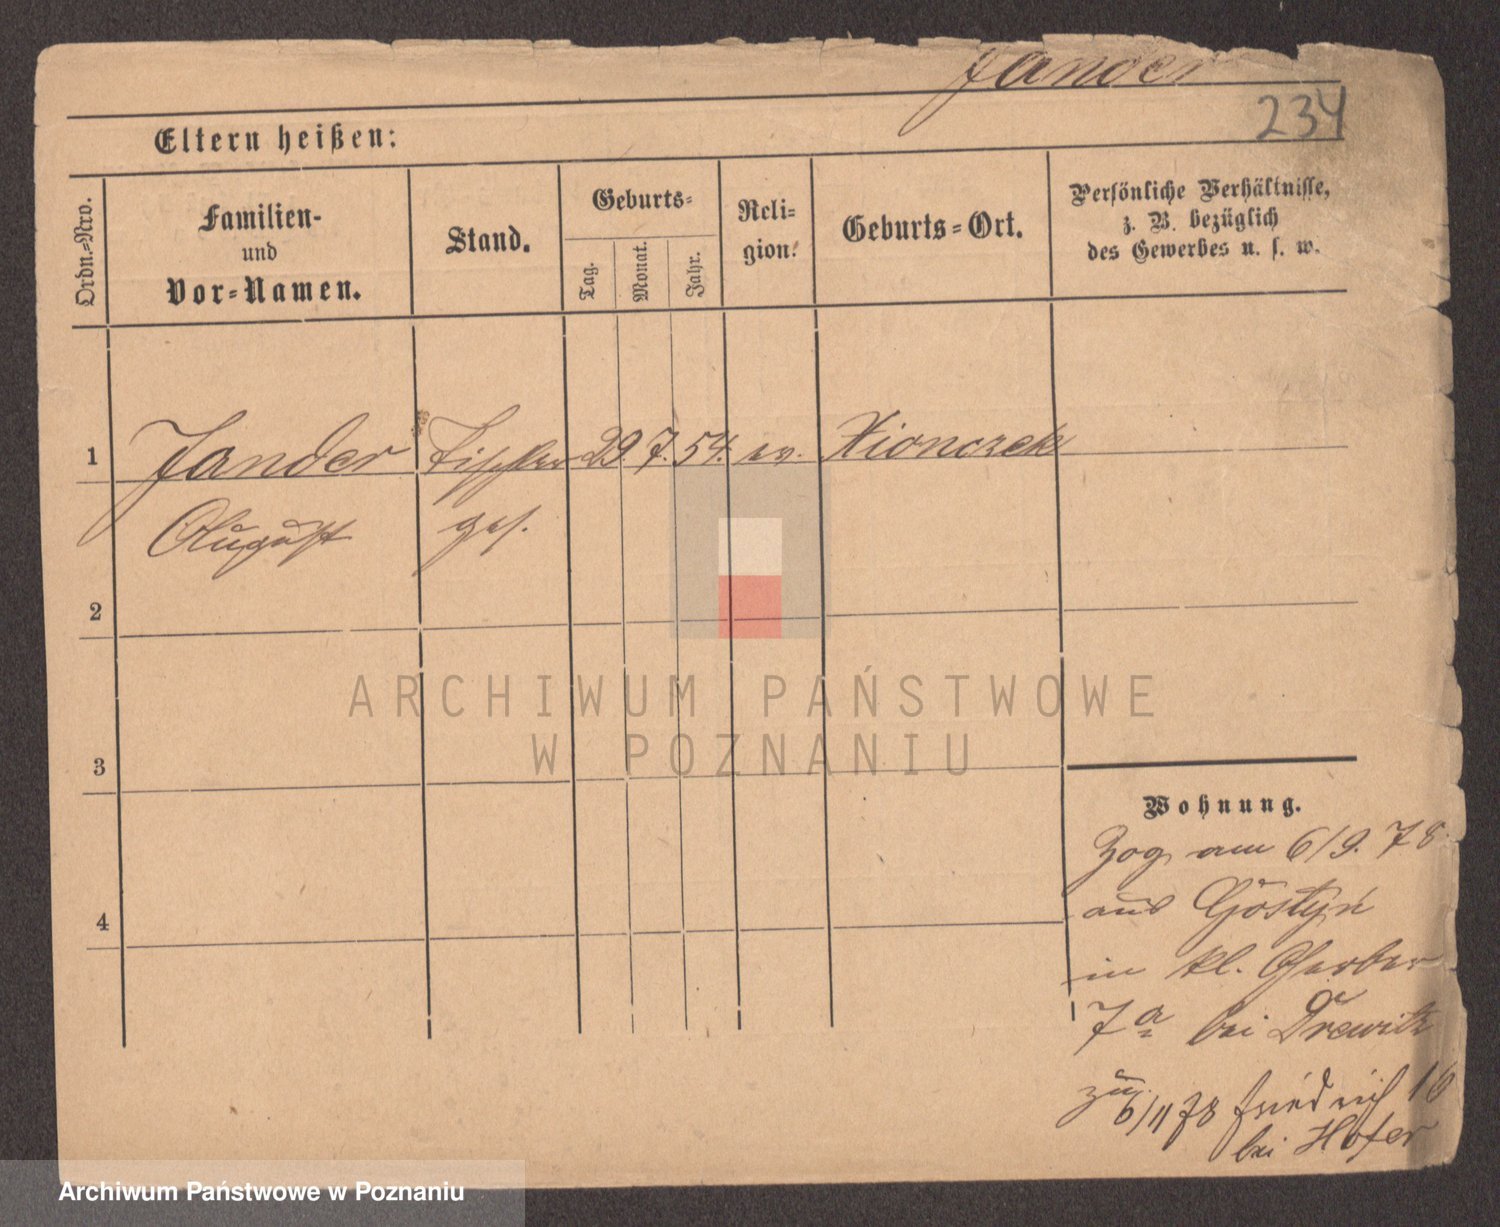 Jander
234
Eltern heißen:
Ordn.=Nro.
Familien-
und
Vor=Namen.
Stand.
Geburts=
Tag.
Monat.
Jahr.
Reli=
gion.
Geburts=Ort.
Persönliche Verhältnisse,
z. B. bezüglich
des Gewerbes u. s. w.
1 Jander Tischler 29 7. 54. ev. Xionczek
August ges.
2
3
4
Wohnung.
Zog am 6/9. 78
aus Gostyń
in kl. Gerber
7a bei Drewitz
6/11 78 Friedrich 16
bei Hofer
ARCHIWUM PAŃSTWOWE
W POZNANIU
Archiwum Państwowe w Poznaniu